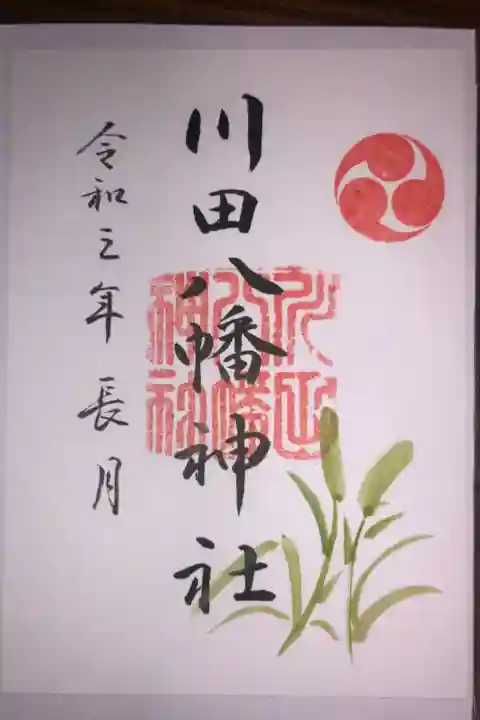 川田八幡神社
令和三年長月